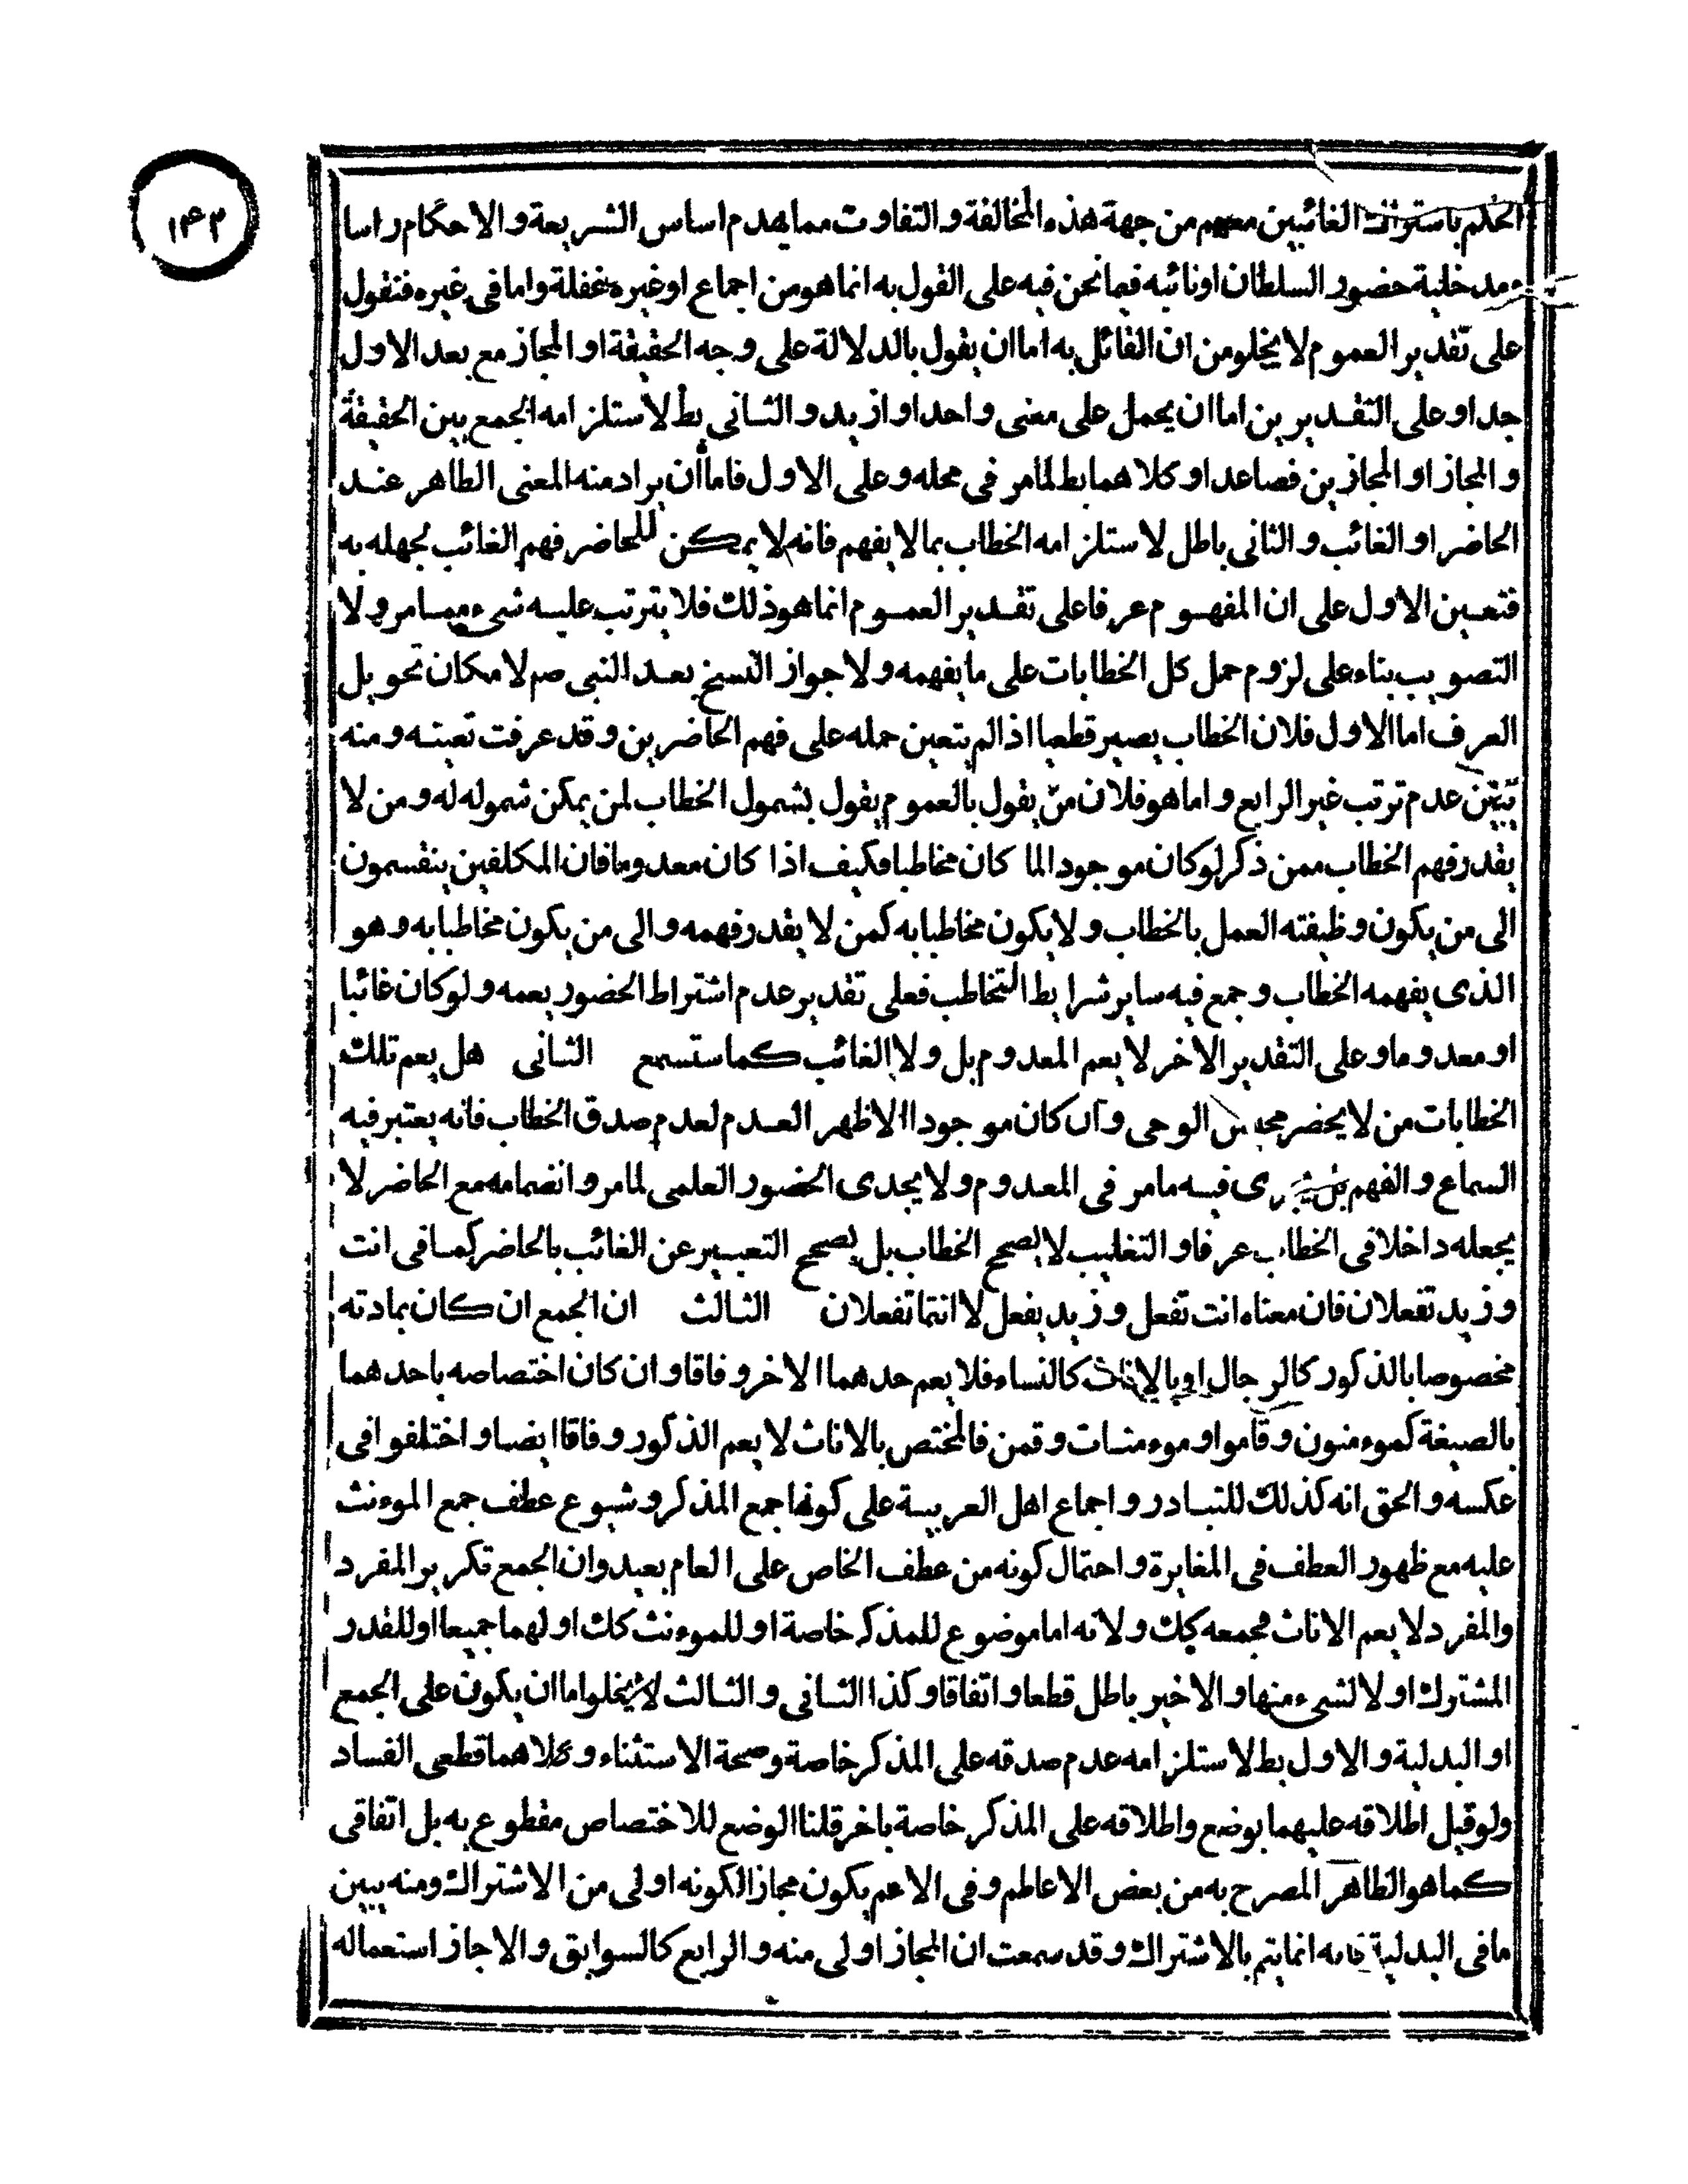 ۱۴۲
الحكم باشتراك الغائبين معهم من جهة هذه المخالفة والتفاوت مما يهدم اساس الشريعة والاحكام راسا
ومدخلية حضور السلطان او نائبه فيما نحن فيه على القول به انما هو من اجماع او غيره غفلة واما في غيره فنقول
على تقدير العموم لا يخلو من ان القائل به اما ان يقول بالدلالة على وجه الحقيقة او المجاز مع بعد الاول
جدا وعلى التقديرين اما ان يحمل على معنى واحد او ازيد والثاني بط لاستلزامه الجمع بين الحقيقة
والمجاز او المجازين فصاعدا وكلاهما بط لما مر في محله وعلى الاول فاما أن يراد منه المعنى الظاهر عند
الحاضر او الغائب والثاني باطل لاستلزامه الخطاب بما لا يفهم فانه لا يمكن للحاضر فهم الغائب لجهله به
فتعين الاول على ان المفهوم عرفا على تقدير العموم انما هو ذلك فلا يترتب عليه شيء مما مر ولا
التصويب بناء على لزوم حمل كل الخطابات على ما يفهمه ولا جواز النسخ بعد النبي صم لا مكان تحويل
العرف اما الاول فلان الخطاب يصير قطعيا اذا لم يتعين حمله على فهم الحاضرين وقد عرفت تعينه ومنه
يتبين عدم ترتب غير الرابع واما هو فلان من يقول بالعموم يقول بشمول الخطاب لمن يمكن شموله له ومن لا
يقدر فهم الخطاب ممن ذكر لو كان موجودا لما كان مخاطبا فكيف اذا كان معدوما فان المكلفين ينقسمون
الى من يكون وظيفته العمل بالخطاب ولا يكون مخاطبا به كمن لا يقدر فهمه والى من يكون مخاطبا به وهو
الذى يفهمه الخطاب وجمع فيه ساير شرايط التخاطب فعلى تقدير عدم اشتراط الحضور يعمه ولو كان غائبا
او معدوما وعلى التقدير الاخر لا يعم المعدوم بل ولا الغائب كما ستسمع الثانى هل يعم تلك
الخطابات من لا يحضر مجلس الوحى وان كان موجودا الاظهر العدم لعدم صدق الخطاب فانه يعتبر فيه
السماع والفهم بل يجرى فيه ما مر في المعدوم ولا يجدى الحضور العلمى لما مر وانضمامه مع الحاضر لا
يجعله داخلا في الخطاب عرفا والتغليب لا يصحح الخطاب بل يصحح التعبير عن الغائب بالحاضر كما في انت
وزيد تفعلان فان معناه انت تفعل وزيد يفعل لا انتما تفعلان الثالث ان الجمع ان كان بمادته
مخصوصا بالذكور كالرجال او بالاناث كالنساء فلا يعم حدهما الاخر وفاقا وان كان اختصاصه باحدهما
بالصيغة كموءمنون وقاموا وموءمنات وقمن فالمختص بالاناث لا يعم الذكور وفاقا ايضا واختلفوا في
عكسه والحق انه كذلك للتبادر واجماع اهل العربية على كونها جمع المذكر وشيوع عطف جمع الموءنث
عليه مع ظهور العطف في المغايرة واحتمال كونه من عطف الخاص على العام بعيد وان الجمع تكرير المفرد
والمفرد لا يعم الاناث فجمعه كك ولانه اما موضوع للمذكر خاصة او للموءنث كك او لهما جميعا او للقدر
المشترك او لا لشىء منها والاخير باطل قطعا واتفاقا وكذا الثانى والثالث لا يخلو اما ان يكون على الجمع
او البدلية والاول بط لاستلزامه عدم صدقه على المذكر خاصة وصحة الاستثناء وكلاهما قطعى الفساد
ولو قيل اطلاقه عليهما بوضع واطلاقه على المذكر خاصة باخر قلنا الوضع للاختصاص مقطوع به بل اتفاقى
كما هو الظاهر المصرح به من بعض الاعاظم وفي الاعم يكون مجازا لكونه اولى من الاشتراك ومنه يبين
ما في البدلية فانه انما يتم بالاشتراك وقد سمعت ان المجاز اولى منه والرابع كالسوابق والا جاز استعماله